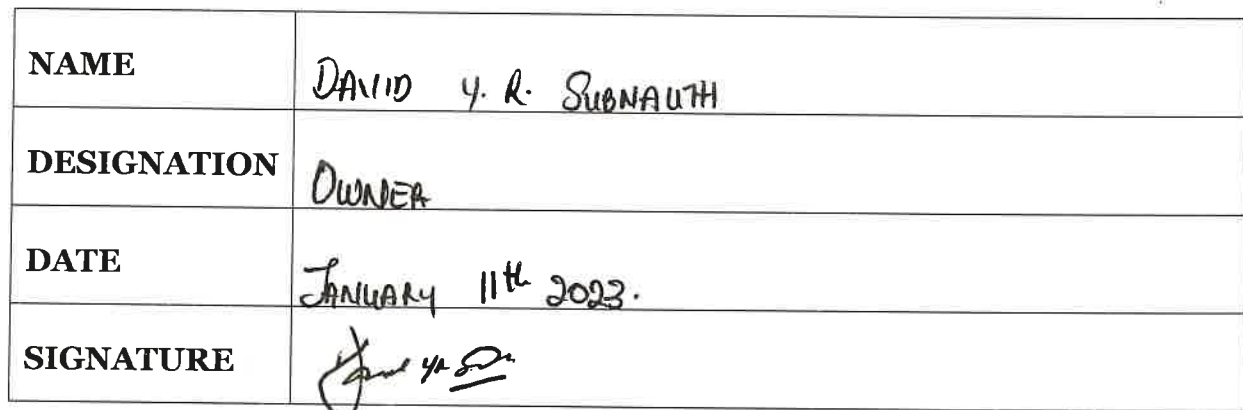 NAME DAVID Y. R. SUBNAUTH
DESIGNATION OWNER
DATE JANUARY 11th 2023.
SIGNATURE